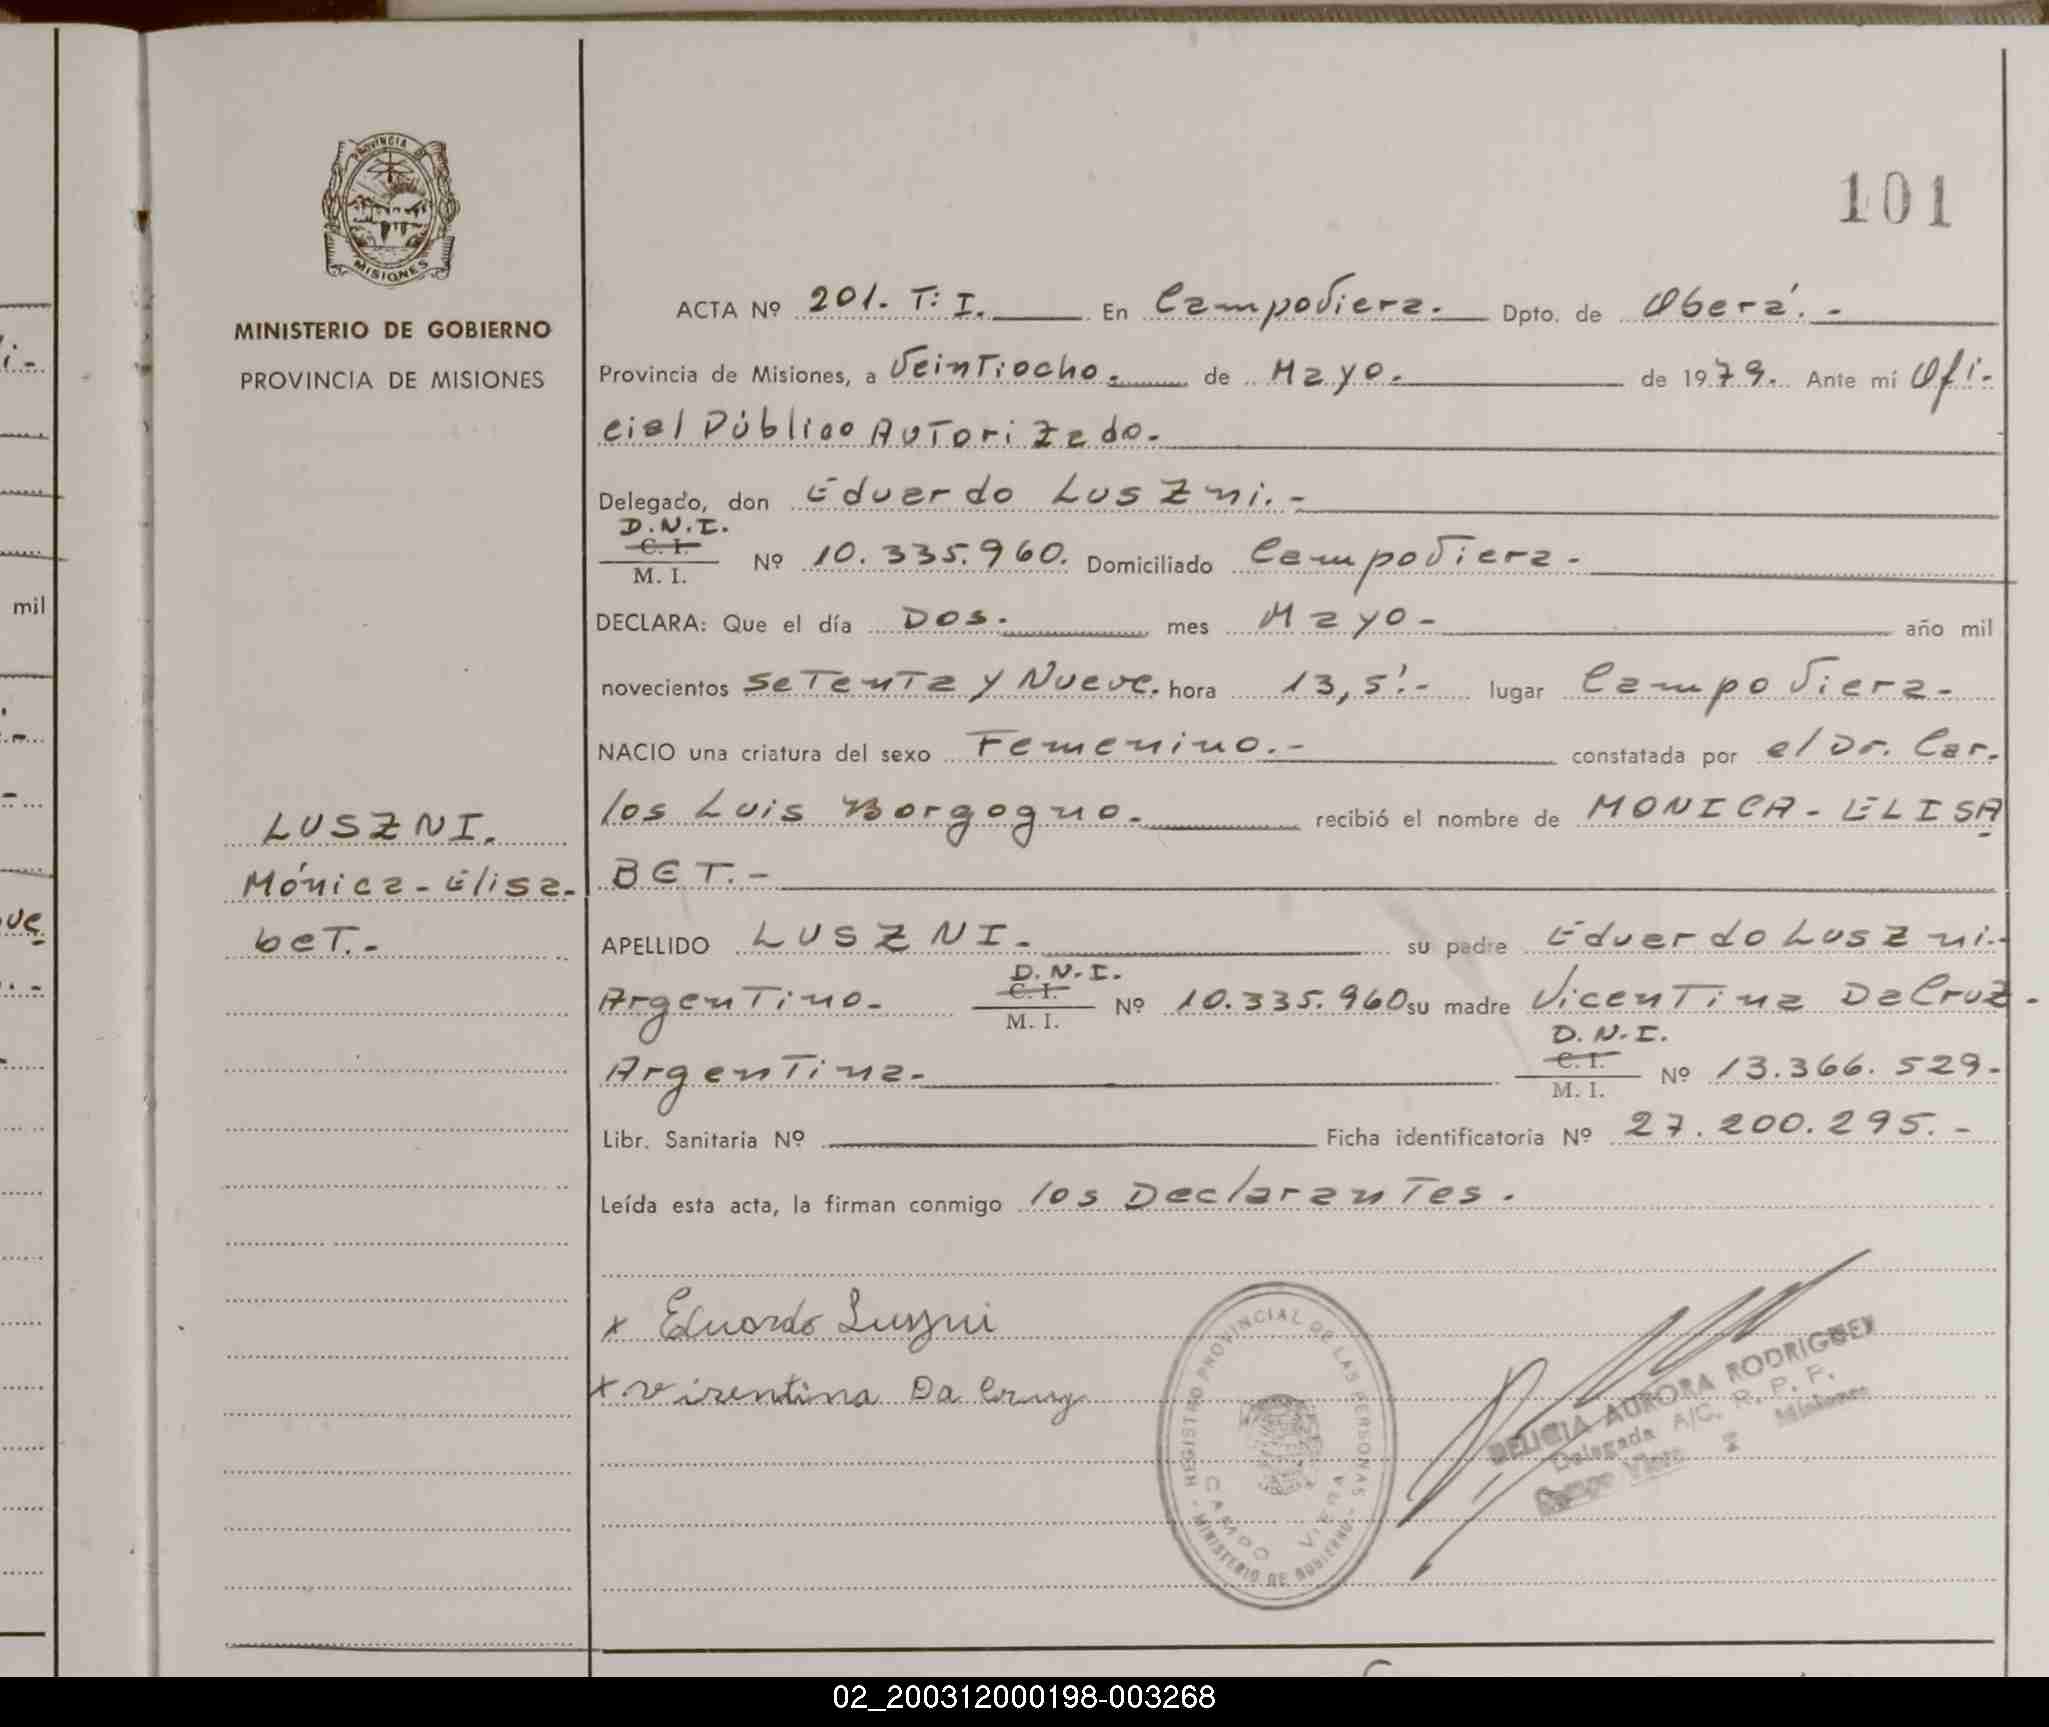 PROVINCIA DE
MISIONES
MINISTERIO DE GOBIERNO
PROVINCIA DE MISIONES
101
ACTA Nº 201. T: I. En Campo Viera. Dpto. de Oberá. -
Provincia de Misiones, a Veintiocho. de Mayo. de 1979. Ante mí Ofi-
cial Público Autorizado.
Delegado, don Eduardo Luszni. -
D.N.I.
C. I.
M. I. Nº 10.335.960. Domiciliado Campo Viera -
DECLARA: Que el día Dos. mes Mayo - año mil
novecientos Setenta y Nueve. hora 13,5'.- lugar Campo Viera -
NACIO una criatura del sexo Femenino. - constatada por el Dr. Car-
los Luis Borgogno. recibió el nombre de MONICA - ELISA
BET. -
LUSZNI.
Mónica - Elisa-
bet. -
APELLIDO LUSZNI. su padre Eduardo Luszni. -
Argentino. D.N.I. C. I. M. I. Nº 10.335.960 su madre Vicentina Da Cruz -
Argentina. D.N.I. C. I. M. I. Nº 13.366.529 -
Libr. Sanitaria Nº Ficha identificatoria Nº 27.200.295. -
Leída esta acta, la firman conmigo los Declarantes.
x Eduardo Luszni
x Visentina Da Cruz
REGISTRO PROVINCIAL DE LAS PERSONAS
- MINISTERIO DE GOBIERNO -
CAMPO VIERA
DELICIA AURORA RODRIGUEZ
Delegada A/C. R. P. P.
Campo Viera Misiones
mil
ue
02_200312000198-003268